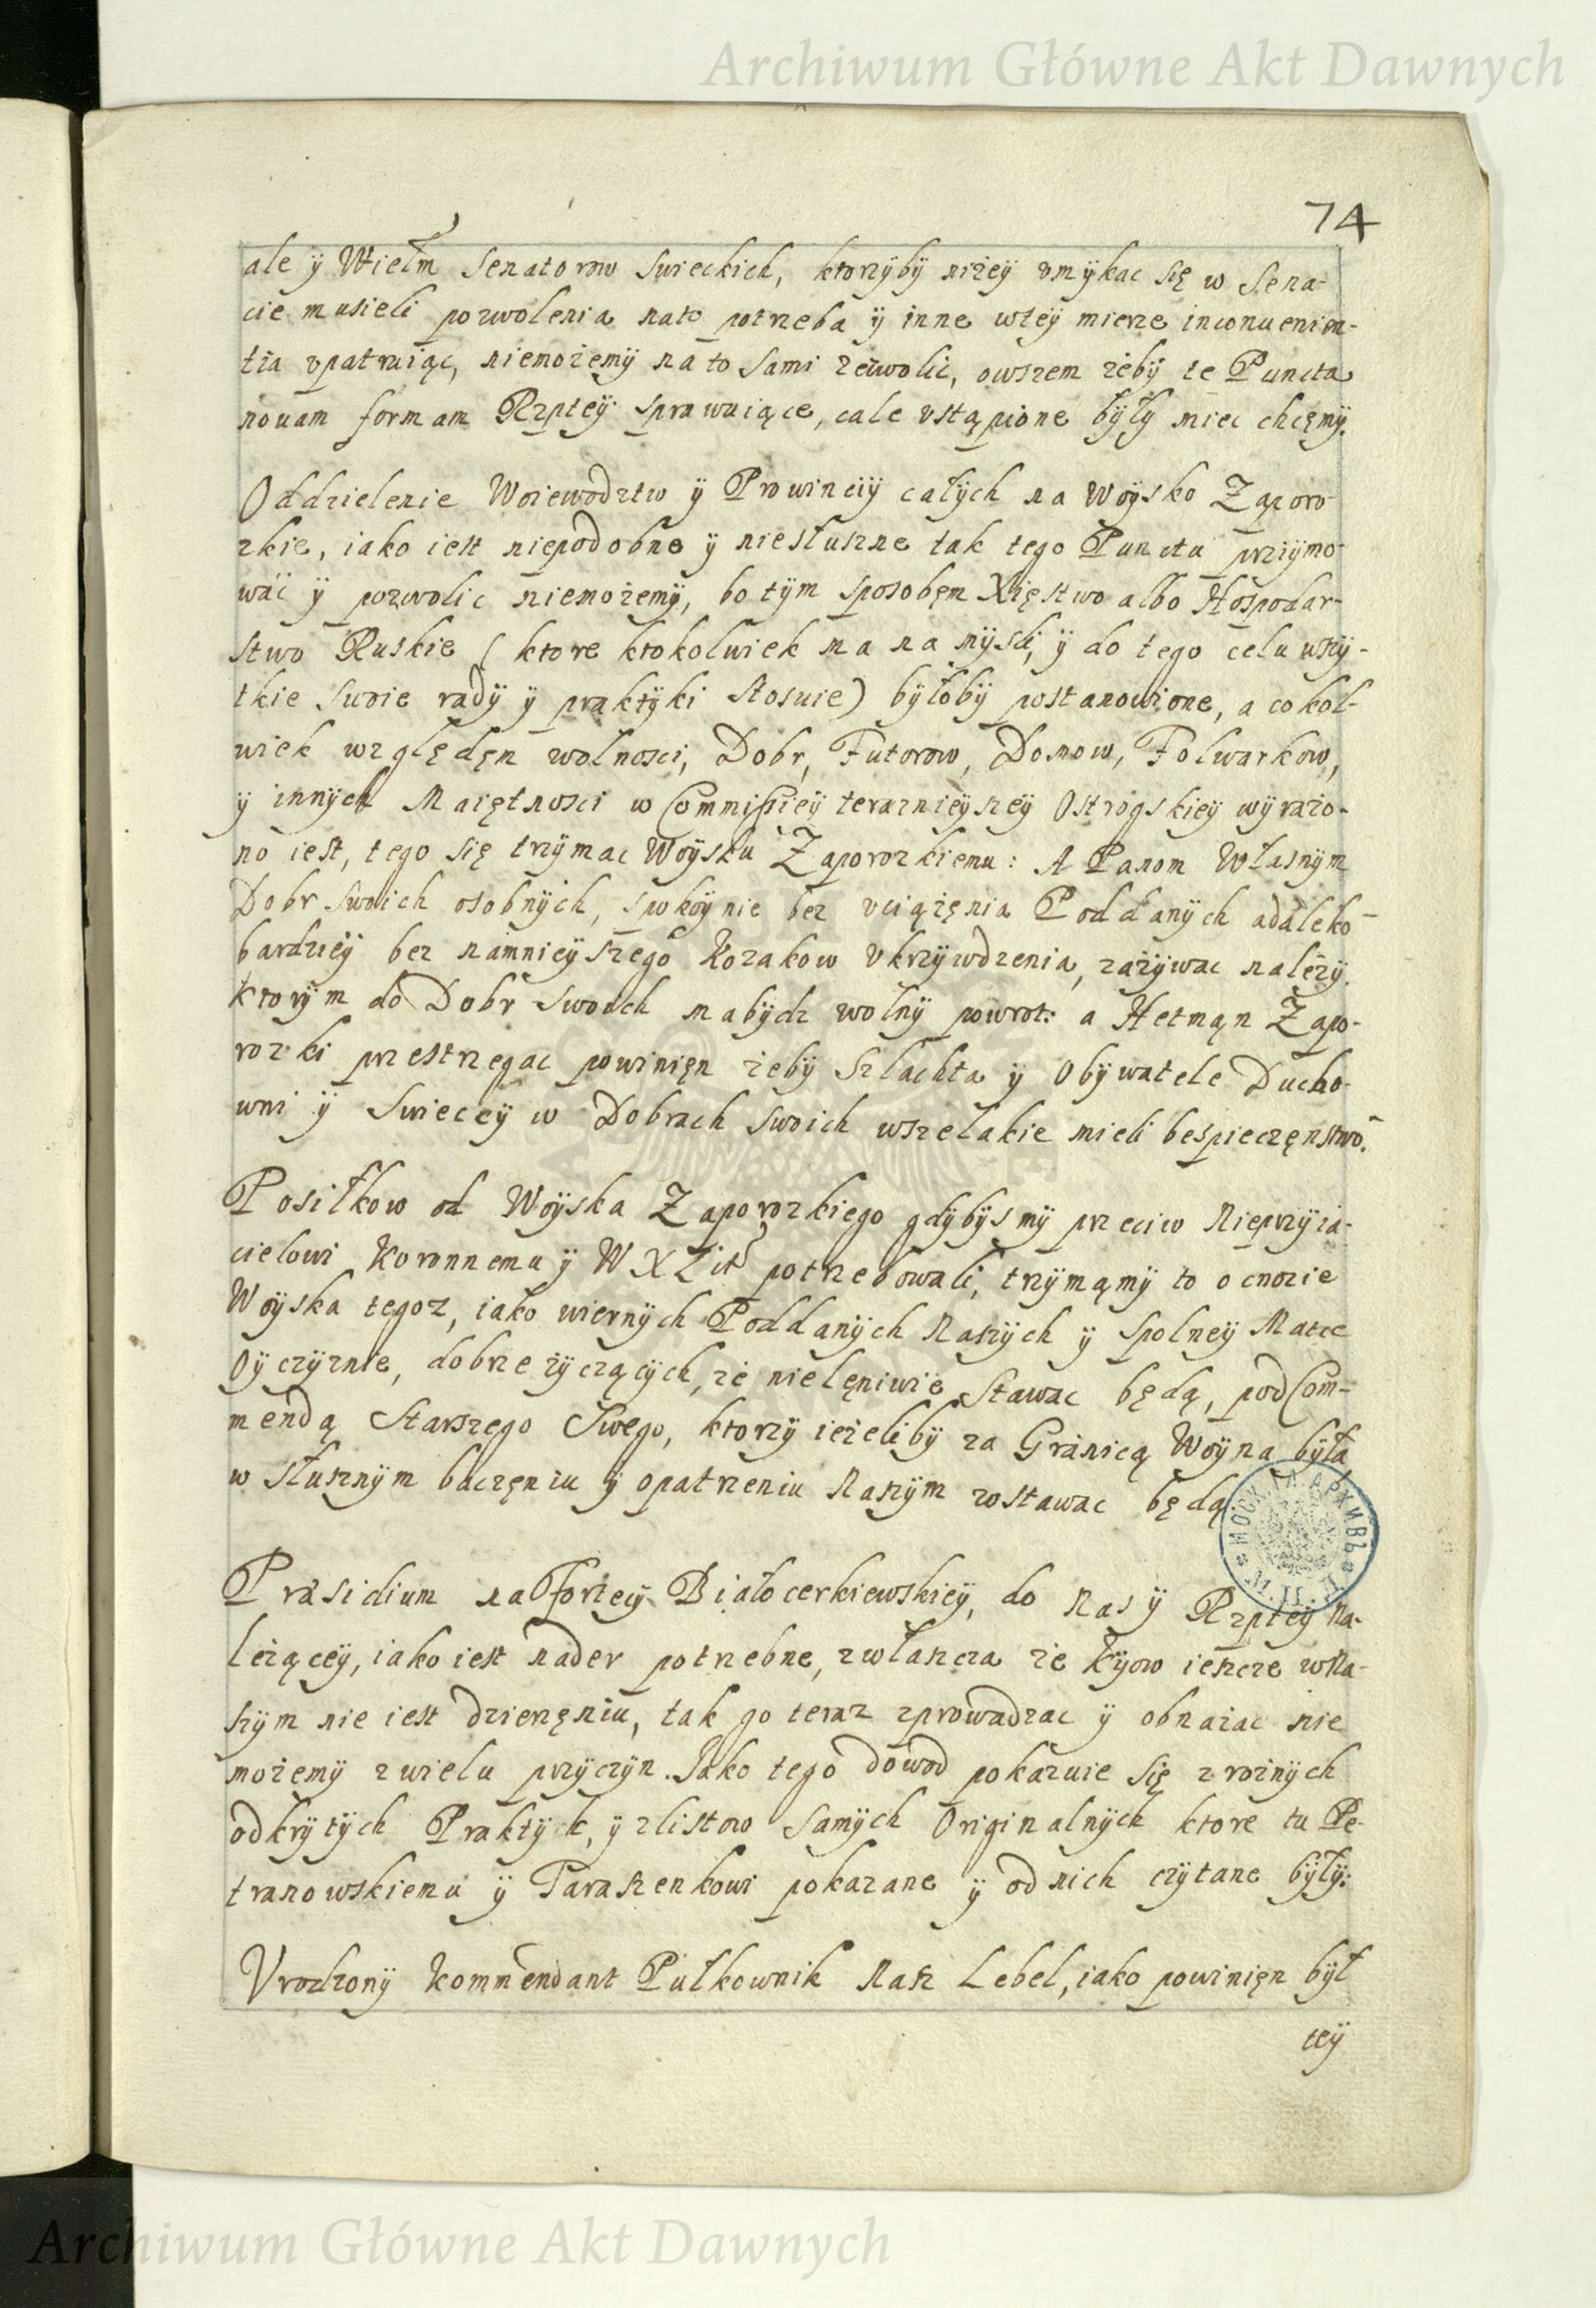 Archiwum Główne Akt Dawnych
74
ale ÿ Wielm Senatorow Swieckich, ktorzÿbÿ niżeÿ vmÿkac się w Sena-
cie musieli pozwolenia nato potrzeba ÿ inne wteÿ mierze inconuenien-
tia vpatruiąc, niemożemÿ na to sami zezwolic, owszem żebÿ te Puncta
nouam formam Rzpteÿ sprawuiące, cale vstąpione bÿłÿ miec chcęmÿ.
Oddzielenie Woiewodztw ÿ Prowinciÿ całÿch na Woÿsko Zaporo-
zkie, iako iest niepodobne ÿ niesłuszne tak tego Punctu przÿimo-
wać ÿ pozwolic niemożemÿ, bo tÿm sposobęm Xięstwo albo Hospodar-
stwo Ruskie (ktore ktokolwiek ma na mÿsli, ÿ do tego celu wszÿ-
tkie swoie radÿ ÿ praktÿki stosuie) bÿłobÿ postanowione, a cokol-
wiek względęm wolnosci, Dobr, Futorow, Domow, Folwarkow,
ÿ innÿch Maiętnosci w Commissieÿ teraznieÿszeÿ Ostrogskieÿ wÿrażo-
no iest, tego się trzÿmac Woÿsku Zaporozkiemu: A Panom Własnÿm
Dobr swoich osobnÿch, spokoÿnie bez vciążęnia Poddanÿch adaleko
bardzieÿ bez namnieÿszego Kozakow vkrzÿwdzenia, zażÿwac należÿ.
Ktorÿm do Dobr swoich ma bÿdz wolnÿ powrot: a Hetmąn Zapo-
rozki przestrzegac powinięn żebÿ Szlachta ÿ Obÿwatele Ducho-
wni ÿ Swieceÿ w Dobrach swoich wszelakie mieli bespieczęnstwo.
Posiłkow od Woÿska Zaporozkiego gdÿbÿsmÿ przeciw Nieprzÿia-
cielowi Koronnemu ÿ WXLitt potrzebowali, trzÿmąmÿ to o cnocie
Woÿska tegoz, iako wiernÿch Poddanÿch Naszÿch ÿ spolneÿ Matce
Oÿczÿznie, dobrze żÿczącÿch, że nielęniwie stawac będą, pod Com-
mendą Starszego Swego, ktorzÿ ieżelibÿ za Granicą Woÿna bÿła,
w słusznÿm baczęniu ÿ opatrzeniu Naszÿm zostawac będą.
Præsidium na Forteceÿ Białocerkiewskieÿ, do Nas ÿ Rzpteÿ na-
leżąceÿ, iako iest nader potrzebne, zwłaszcza że Kÿow ieszcze w Na-
szÿm nie iest dzierzęniu, tak go teraz zprowadzac ÿ obnażac nie
możemÿ z wielu przÿczÿn. Jako tego dowod pokazuie się z rożnÿch
odkrÿtÿch Praktÿk, ÿ z listow samÿch Originalnÿch ktore tu Pe-
tranowskiemu ÿ Taraszenkowi pokazane ÿ od nich czÿtane bÿłÿ:
Vrodzonÿ Kommendant Pułkownik Nasz Lebel, iako powinięn bÿł
teÿ
Archiwum Główne Akt Dawnych